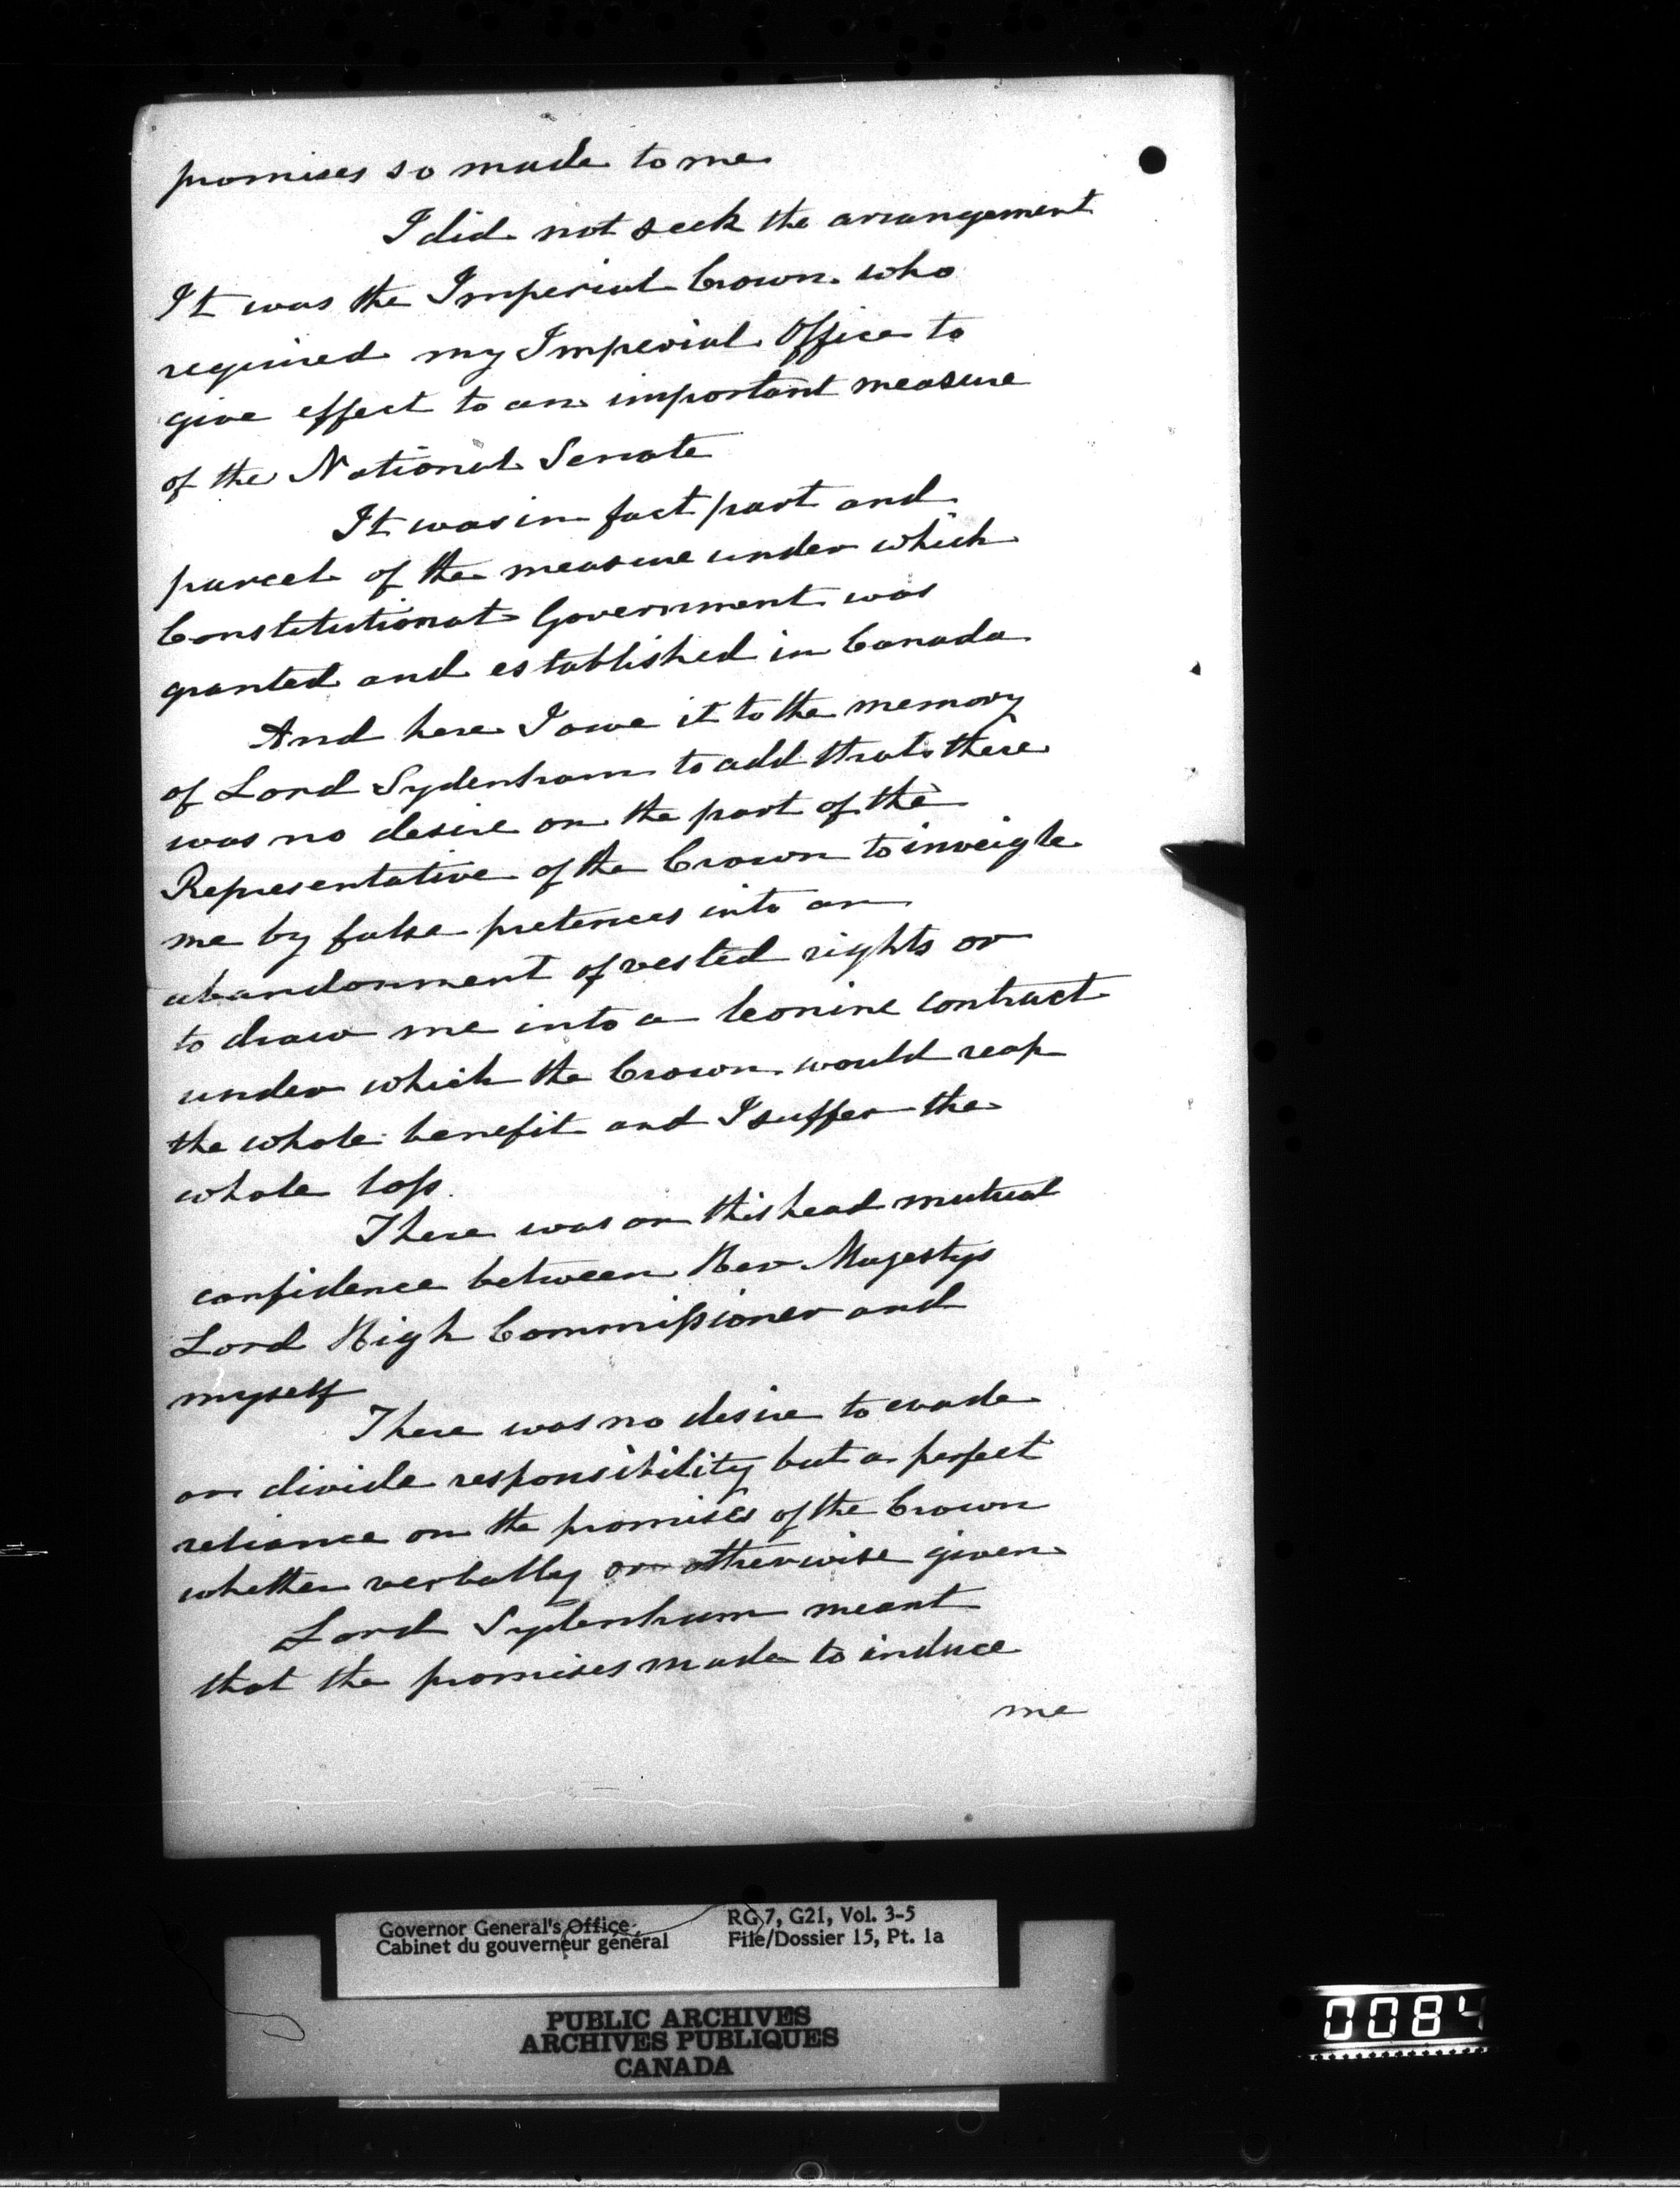 promises so made to me
I did not seek the arrangement
It was the Imperial Crown who
required my Imperial Office to
give effect to an important measure
of the National Senate
It was in fact part and
parcel of the measure under which
Constitutional Government was
granted and established in Canada
And here I owe it to the memory
of Lord Sydenham to add that there
was no desire on the part of the
Representative of the Crown to inveigle
me by false pretences into an
abandonment of vested rights or
to draw me into a leonine contract
under which the Crown would reap
the whole benefit and I suffer the
whole loss.
There was on this head mutual
confidence between Her Majestys
Lord High Commissioner and
myself
There was no desire to evade
or divide responsibility but a perfect
reliance on the promises of the Crown
whether verbally or otherwise given
Lord Sydenham meant
that the promises made to induce
me
Governor General's Office
Cabinet du gouverneur général
RG 7, G21, Vol. 3-5
File/Dossier 15, Pt. 1a
PUBLIC ARCHIVES
ARCHIVES PUBLIQUES
CANADA
0084